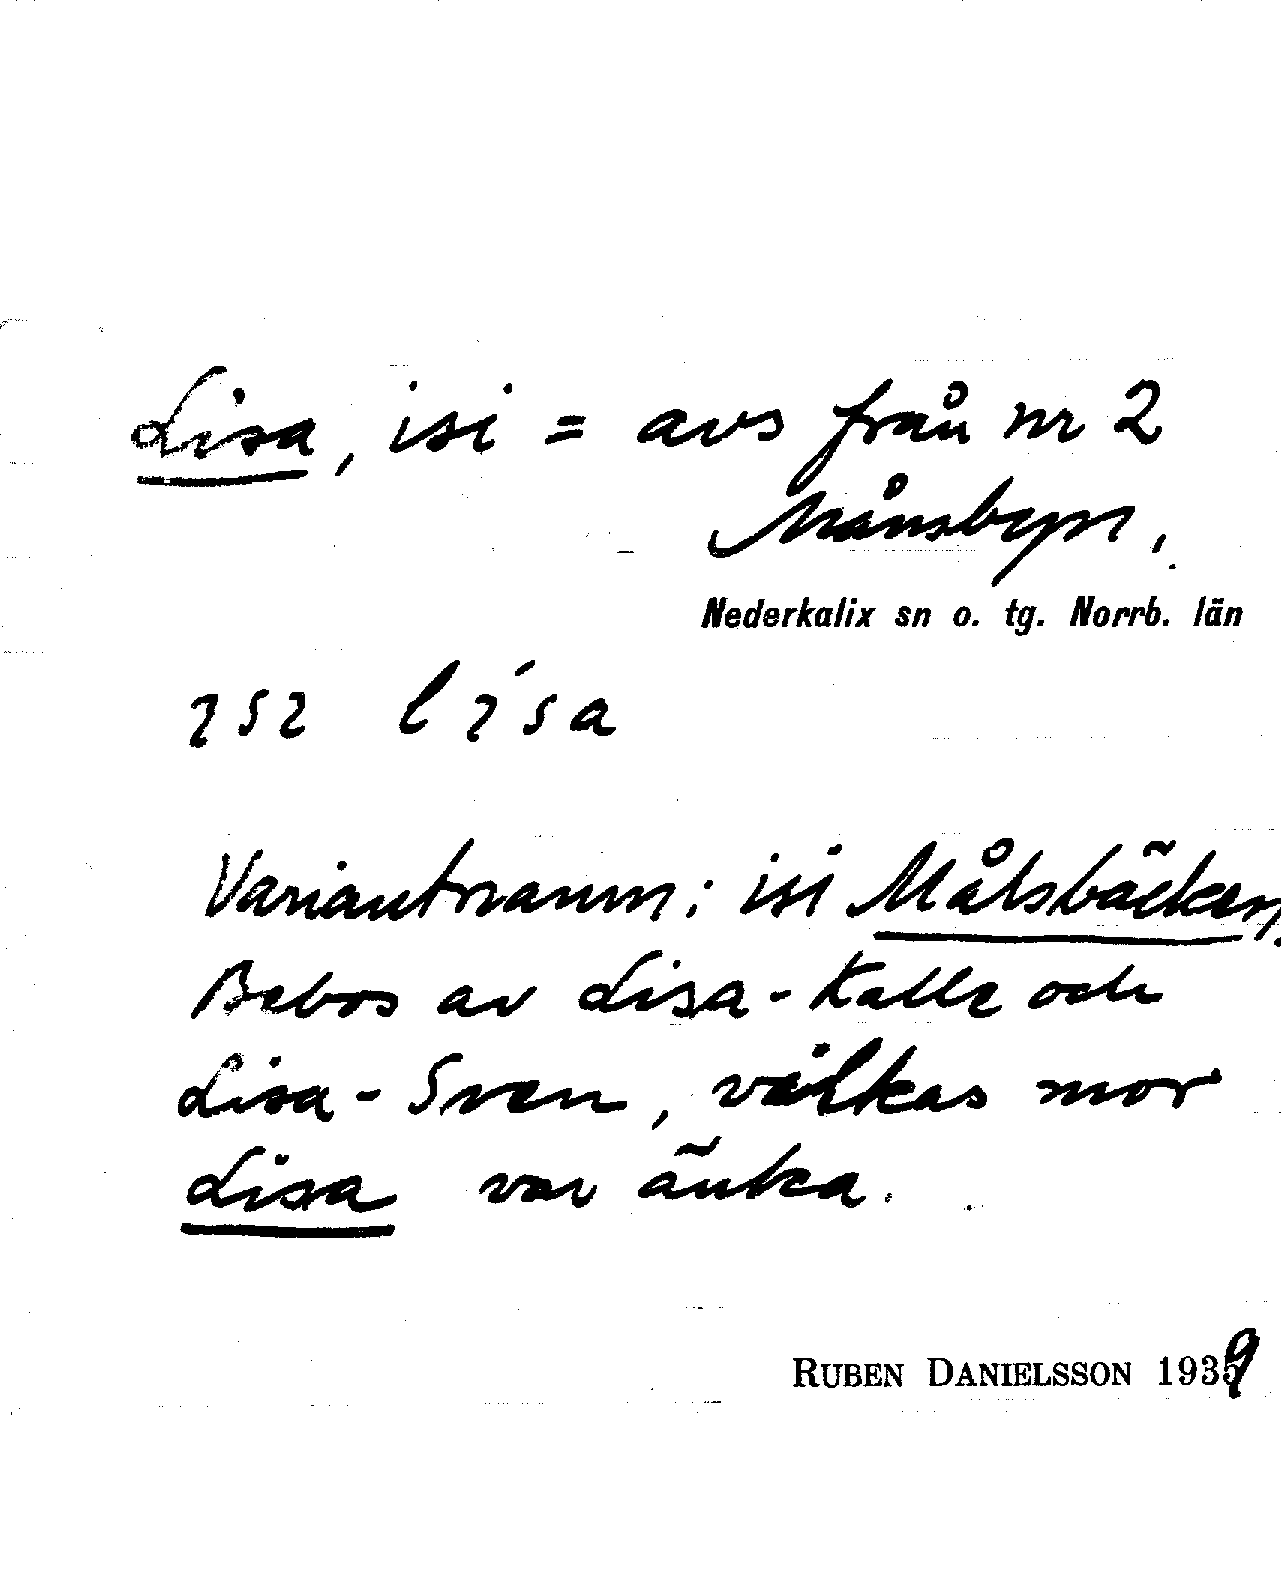 Lisa, isi = avs från nr 2
Månsbyn,
Nederkalix sn o. tg. Norrb. län
ɿsɿ lɿ́sa
Variantnamn: isi Målsbäcken,
Bebos av Lisa-Kalle och
Lisa-Sven, vilkas mor
Lisa var änka.
RUBEN DANIELSSON 1939